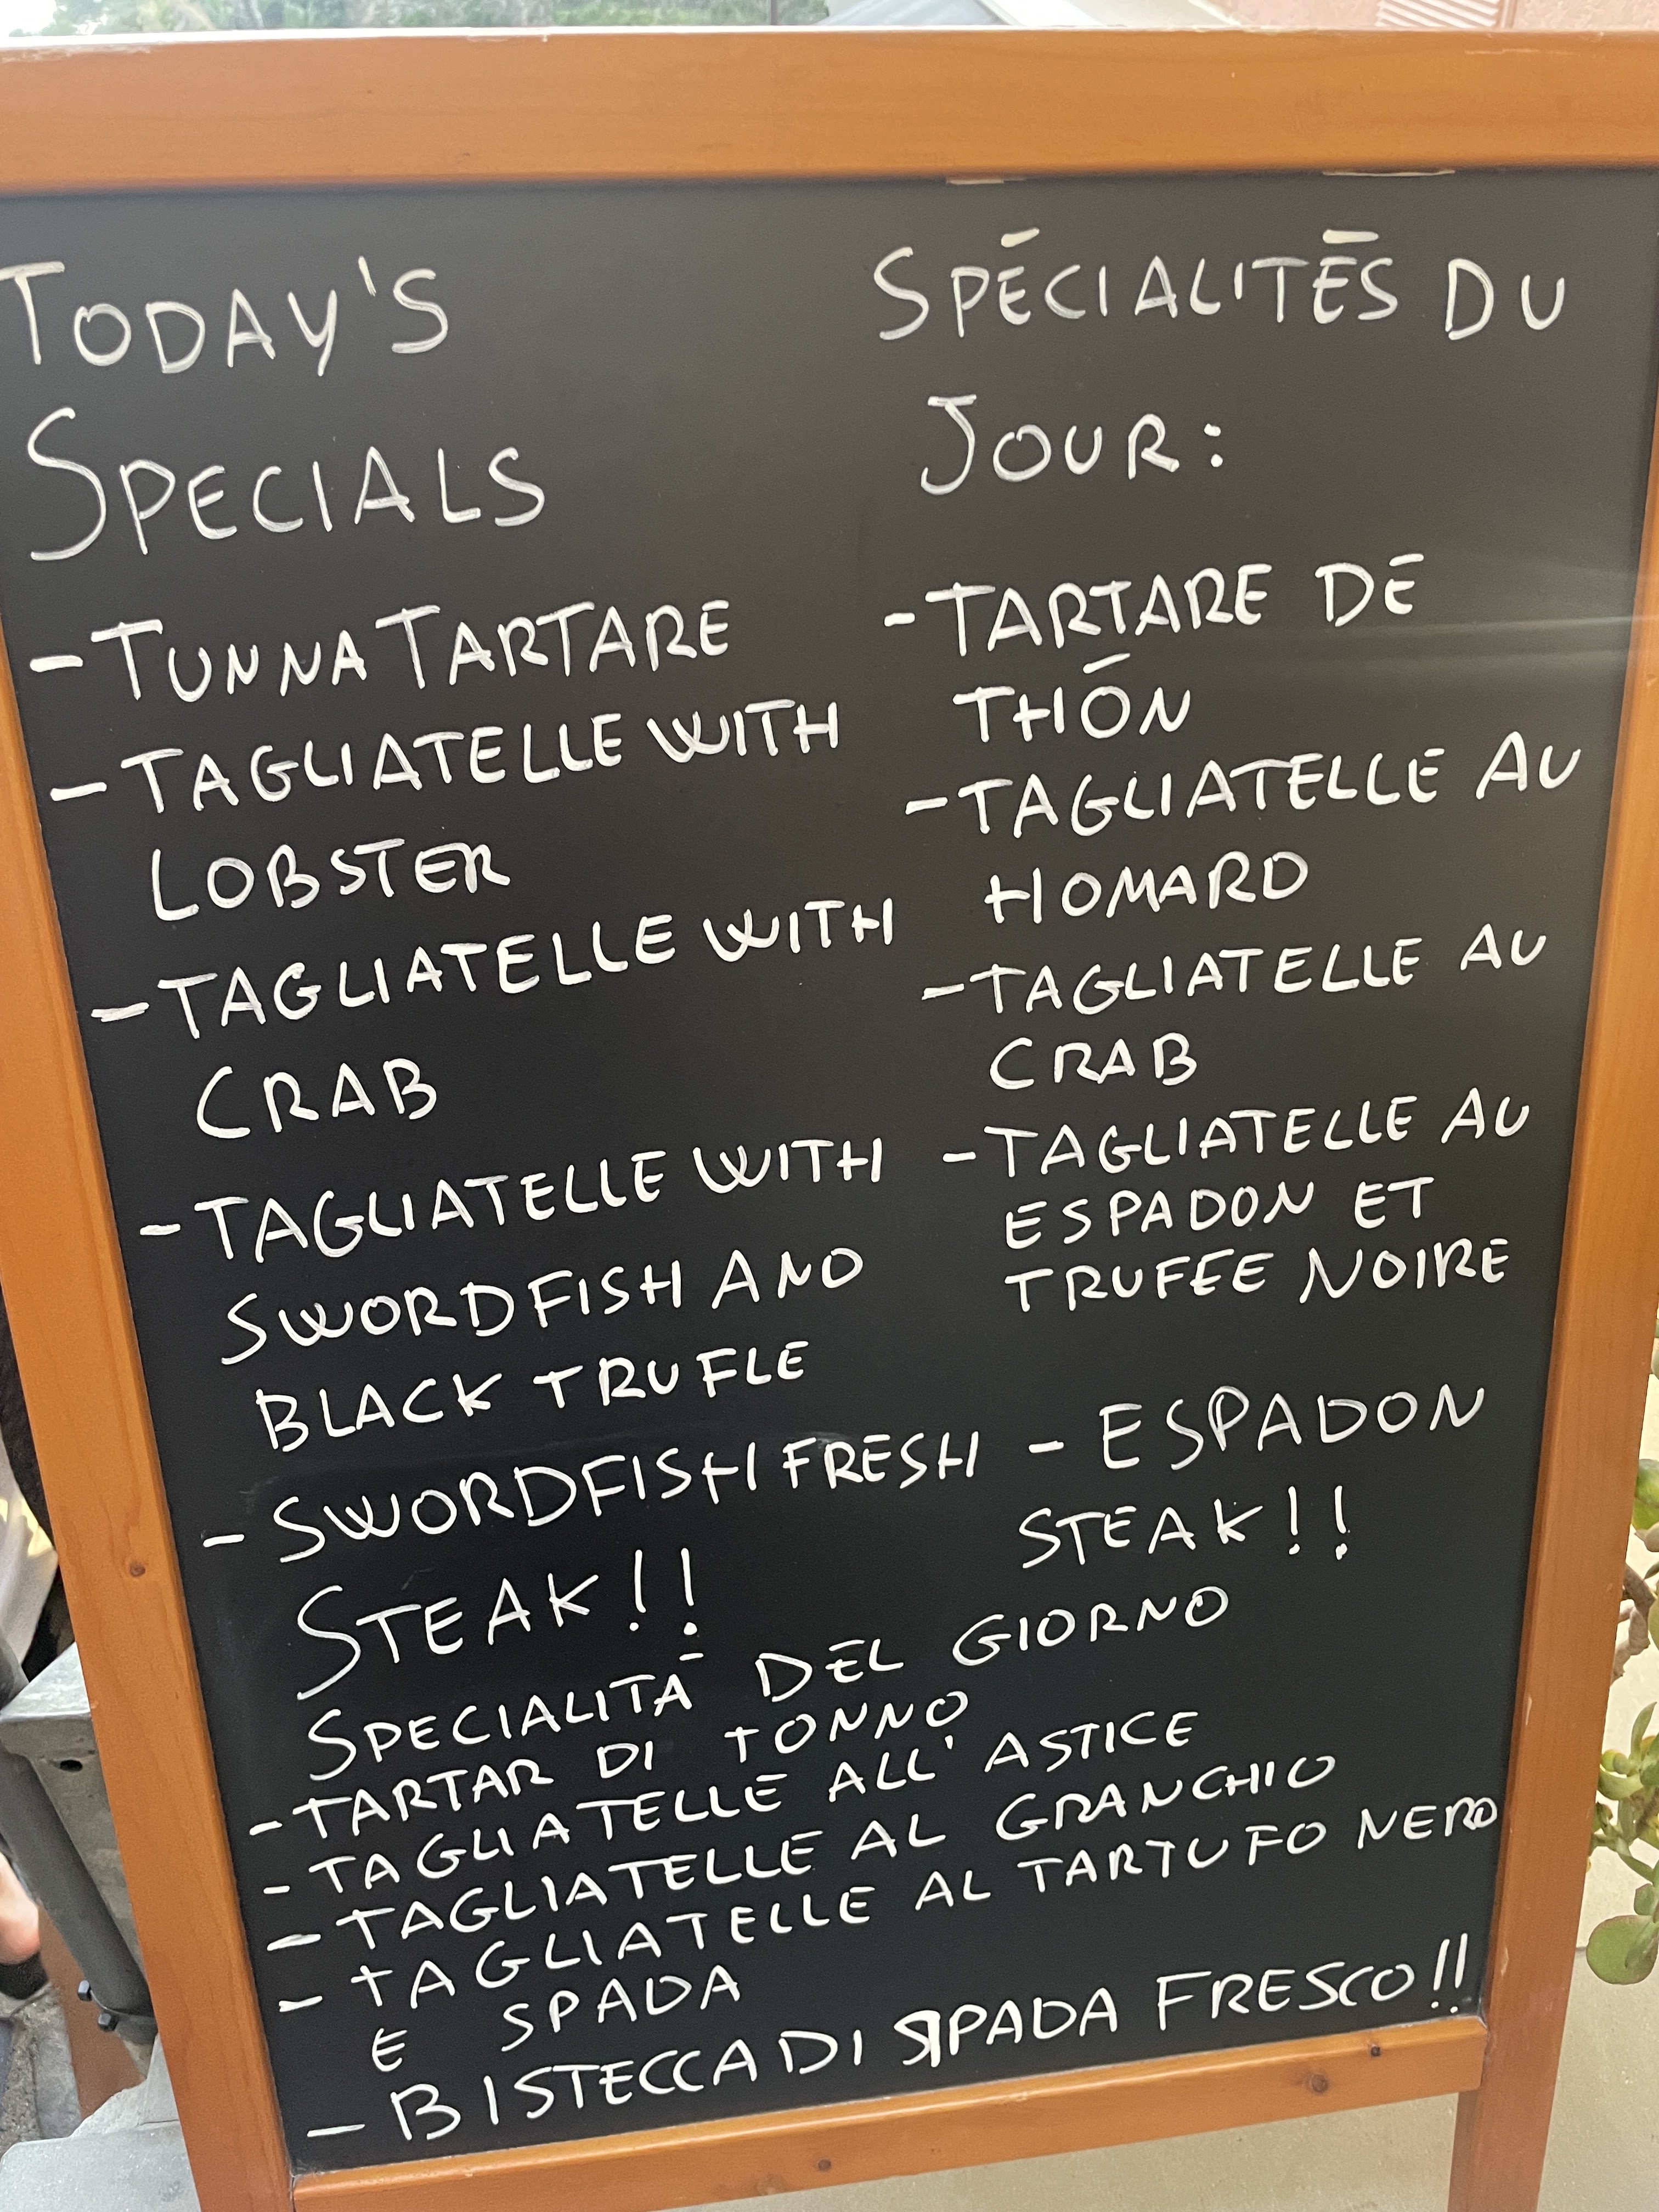 TODAY'S
SPECIALS
- TUNNA TARTARE
- TAGLIATELLE WITH
LOBSTER
- TAGLIATELLE WITH
CRAB
- TAGLIATELLE WITH
SWORDFISH AND
BLACK TRUFLE
- SWORDFISH FRESH
STEAK!!
SPÉCIALITÉS DU
JOUR:
- TARTARE DE
THÓN
- TAGLIATELLE AU
HOMARD
- TAGLIATELLE AU
CRAB
- TAGLIATELLE AU
ESPADON ET
TRUFEE NOIRE
- ESPADON
STEAK!!
SPECIALITÁ DEL GIORNO
- TARTAR DI TONNO
- TAGLIATELLE ALL'ASTICE
- TAGLIATELLE AL GRANCHIO
- TAGLIATELLE AL TARTUFO NERO
E SPADA
- BISTECCA DI SPADA FRESCO!!